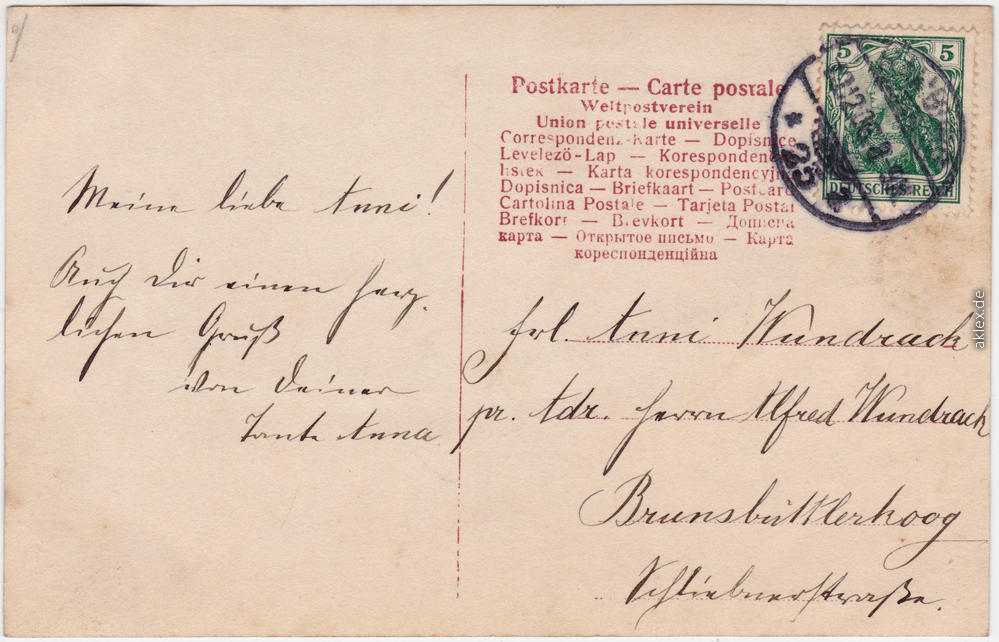 Meine liebe Anni!
Auch Dir einen herz-
lichen Gruß
von Deiner
Tante Anna
Postkarte — Carte postale
Weltpostverein
Union postale universelle
Correspondenz-Karte — Dopisnice
Levelező-Lap — Korespondenční
lístek — Karta korespondencyjna
Dopisnica — Briefkaart — Postcard
Cartolina Postale — Tarjeta Postal
Brefkort — Brevkort — Дописна
карта — Открытое письмо — Карта
кореспонденційна
5 5
DEUTSCHES REICH
* 25
Frl. Anni Wundrack
pr. Adr. Herrn Alfred Wundrack
Brunsbüttlerkoog
Schliebnerstraße.
aklex.de